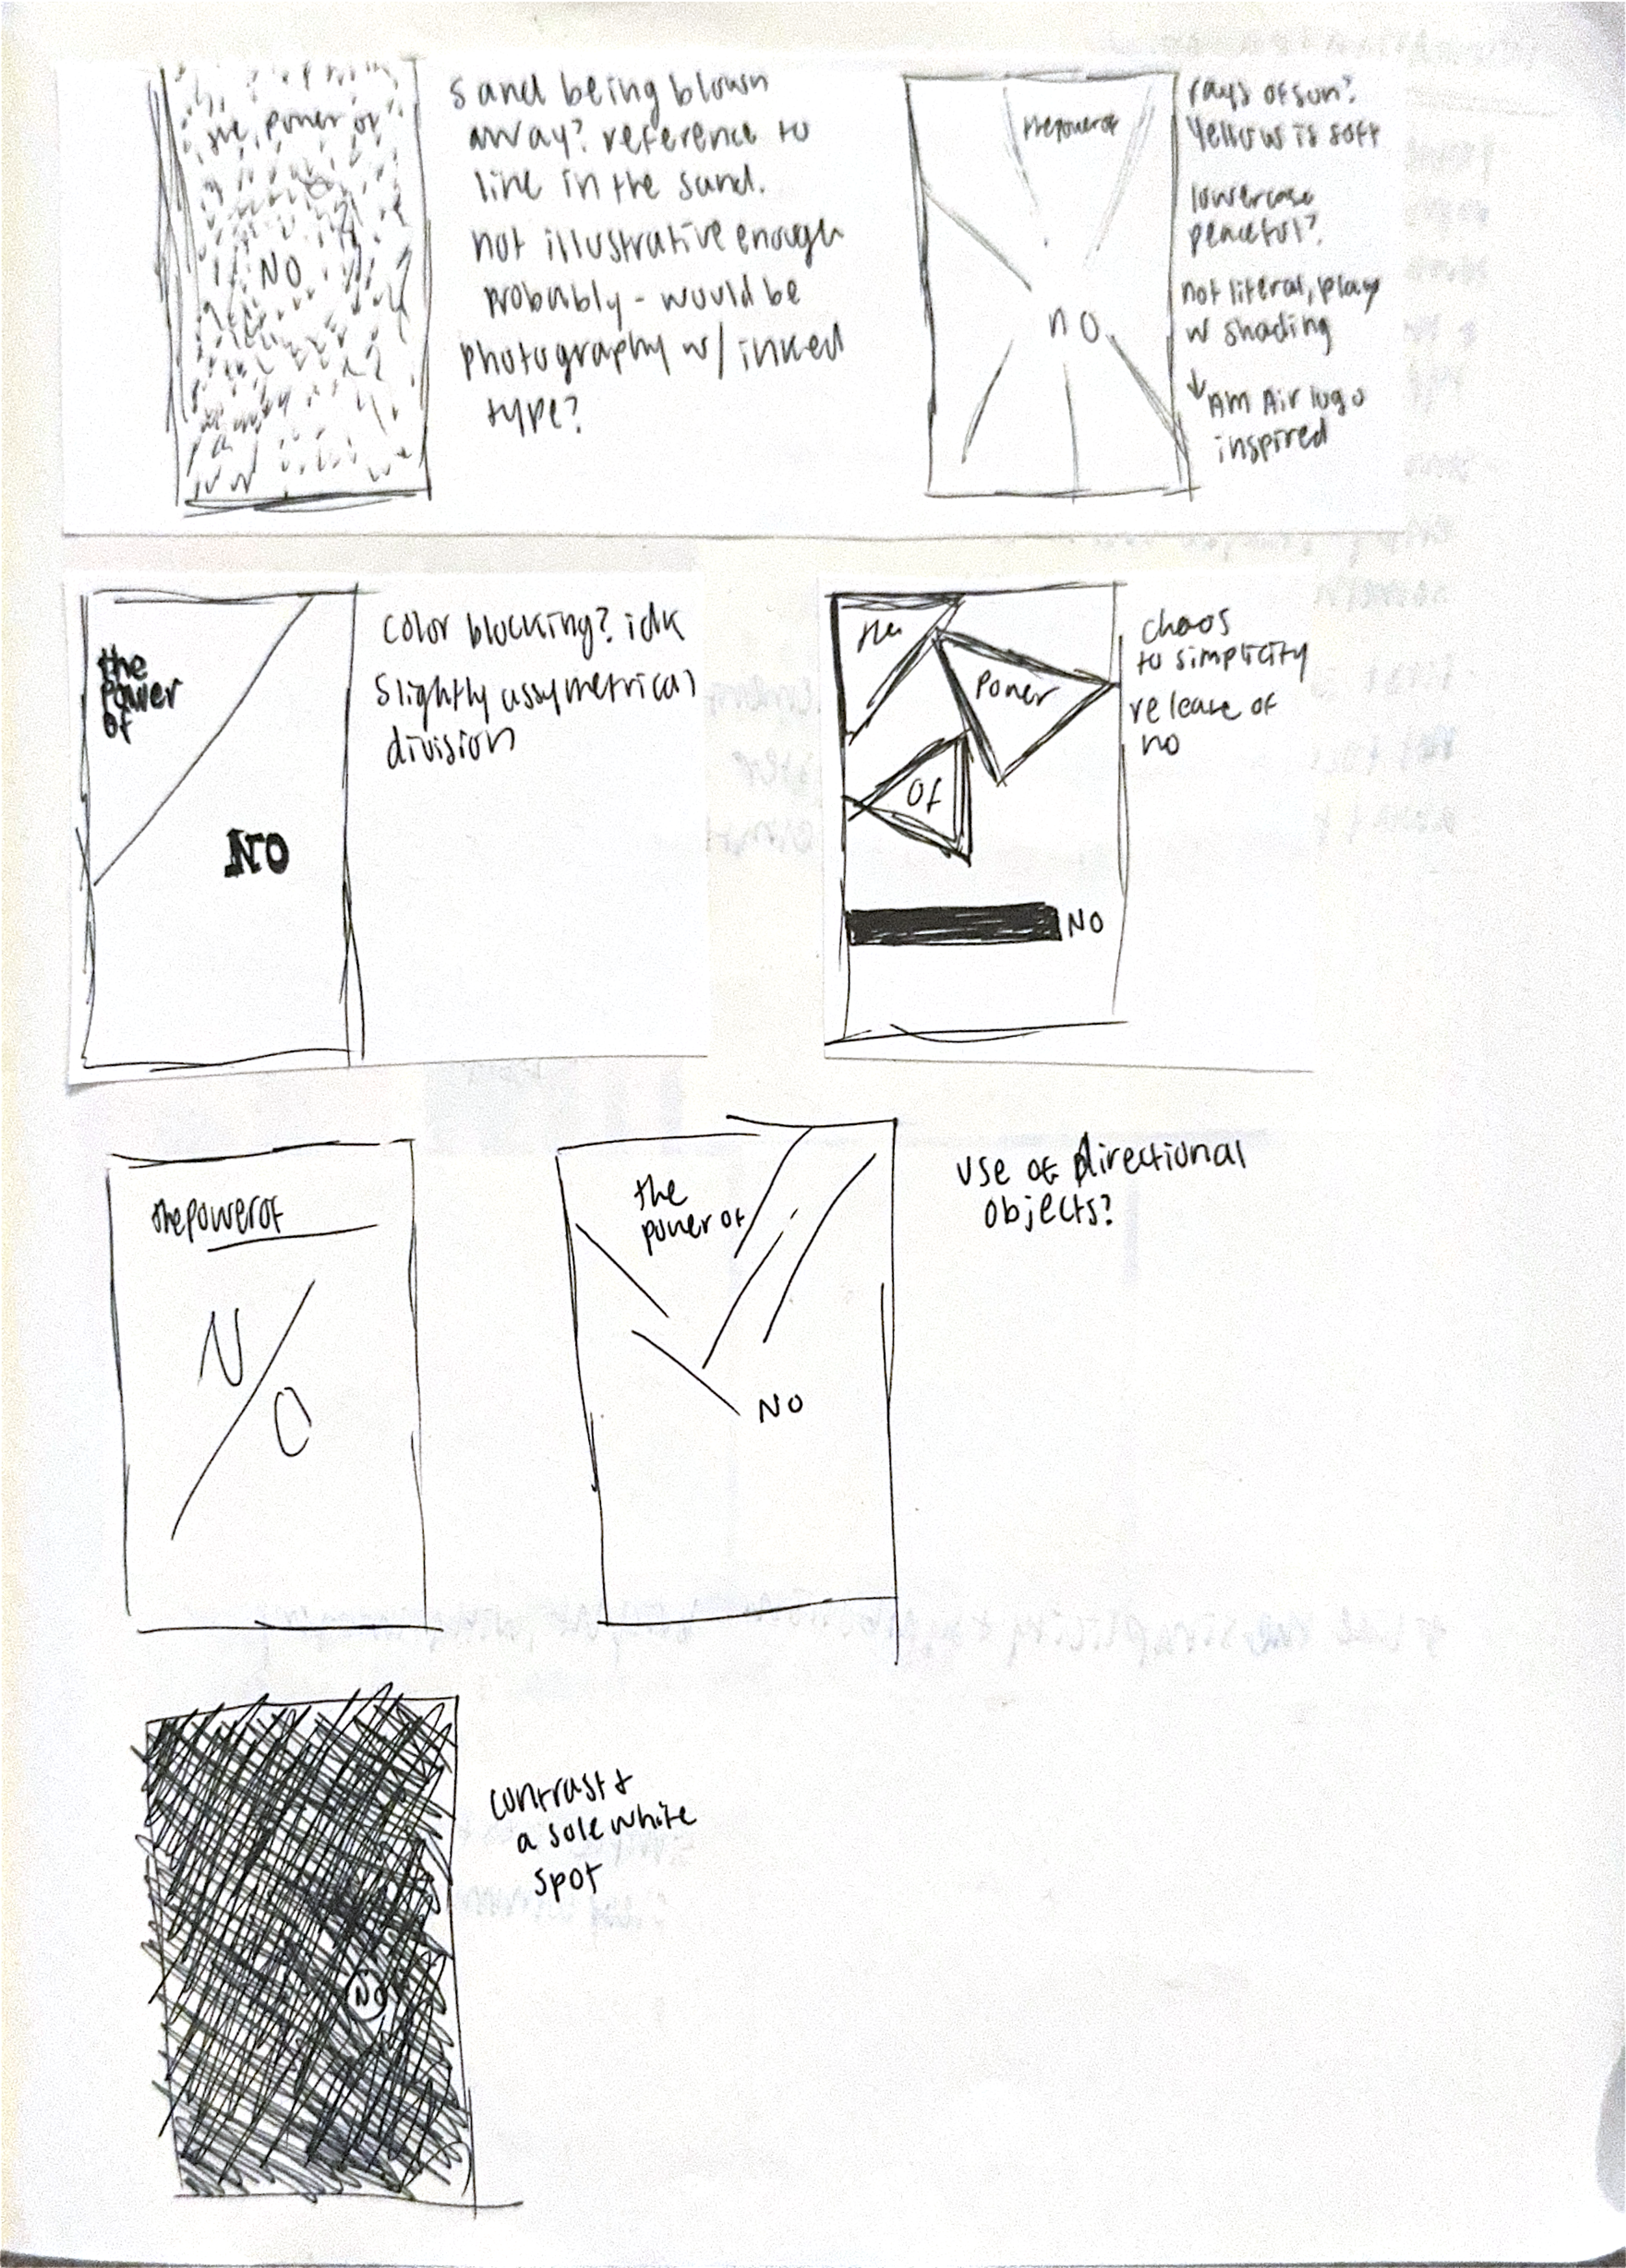 the power of
NO
sand being blown
away? reference to
line in the sand.
not illustrative enough
probably - would be
photography w/ inked
type?
thepowerof
no
rays of sun?
Yellow is soft
lowercase
peaceful?
not literal, play
w shading
↓ Am Air logo
inspired
the
power
of
NO
color blocking? idk
slightly assymetrical
division
the
power
of
NO
chaos
to simplicity
release of
no
thepowerof
N/O
the
power of
NO
use of directional
objects?
NO
contrast &
a sole white
spot